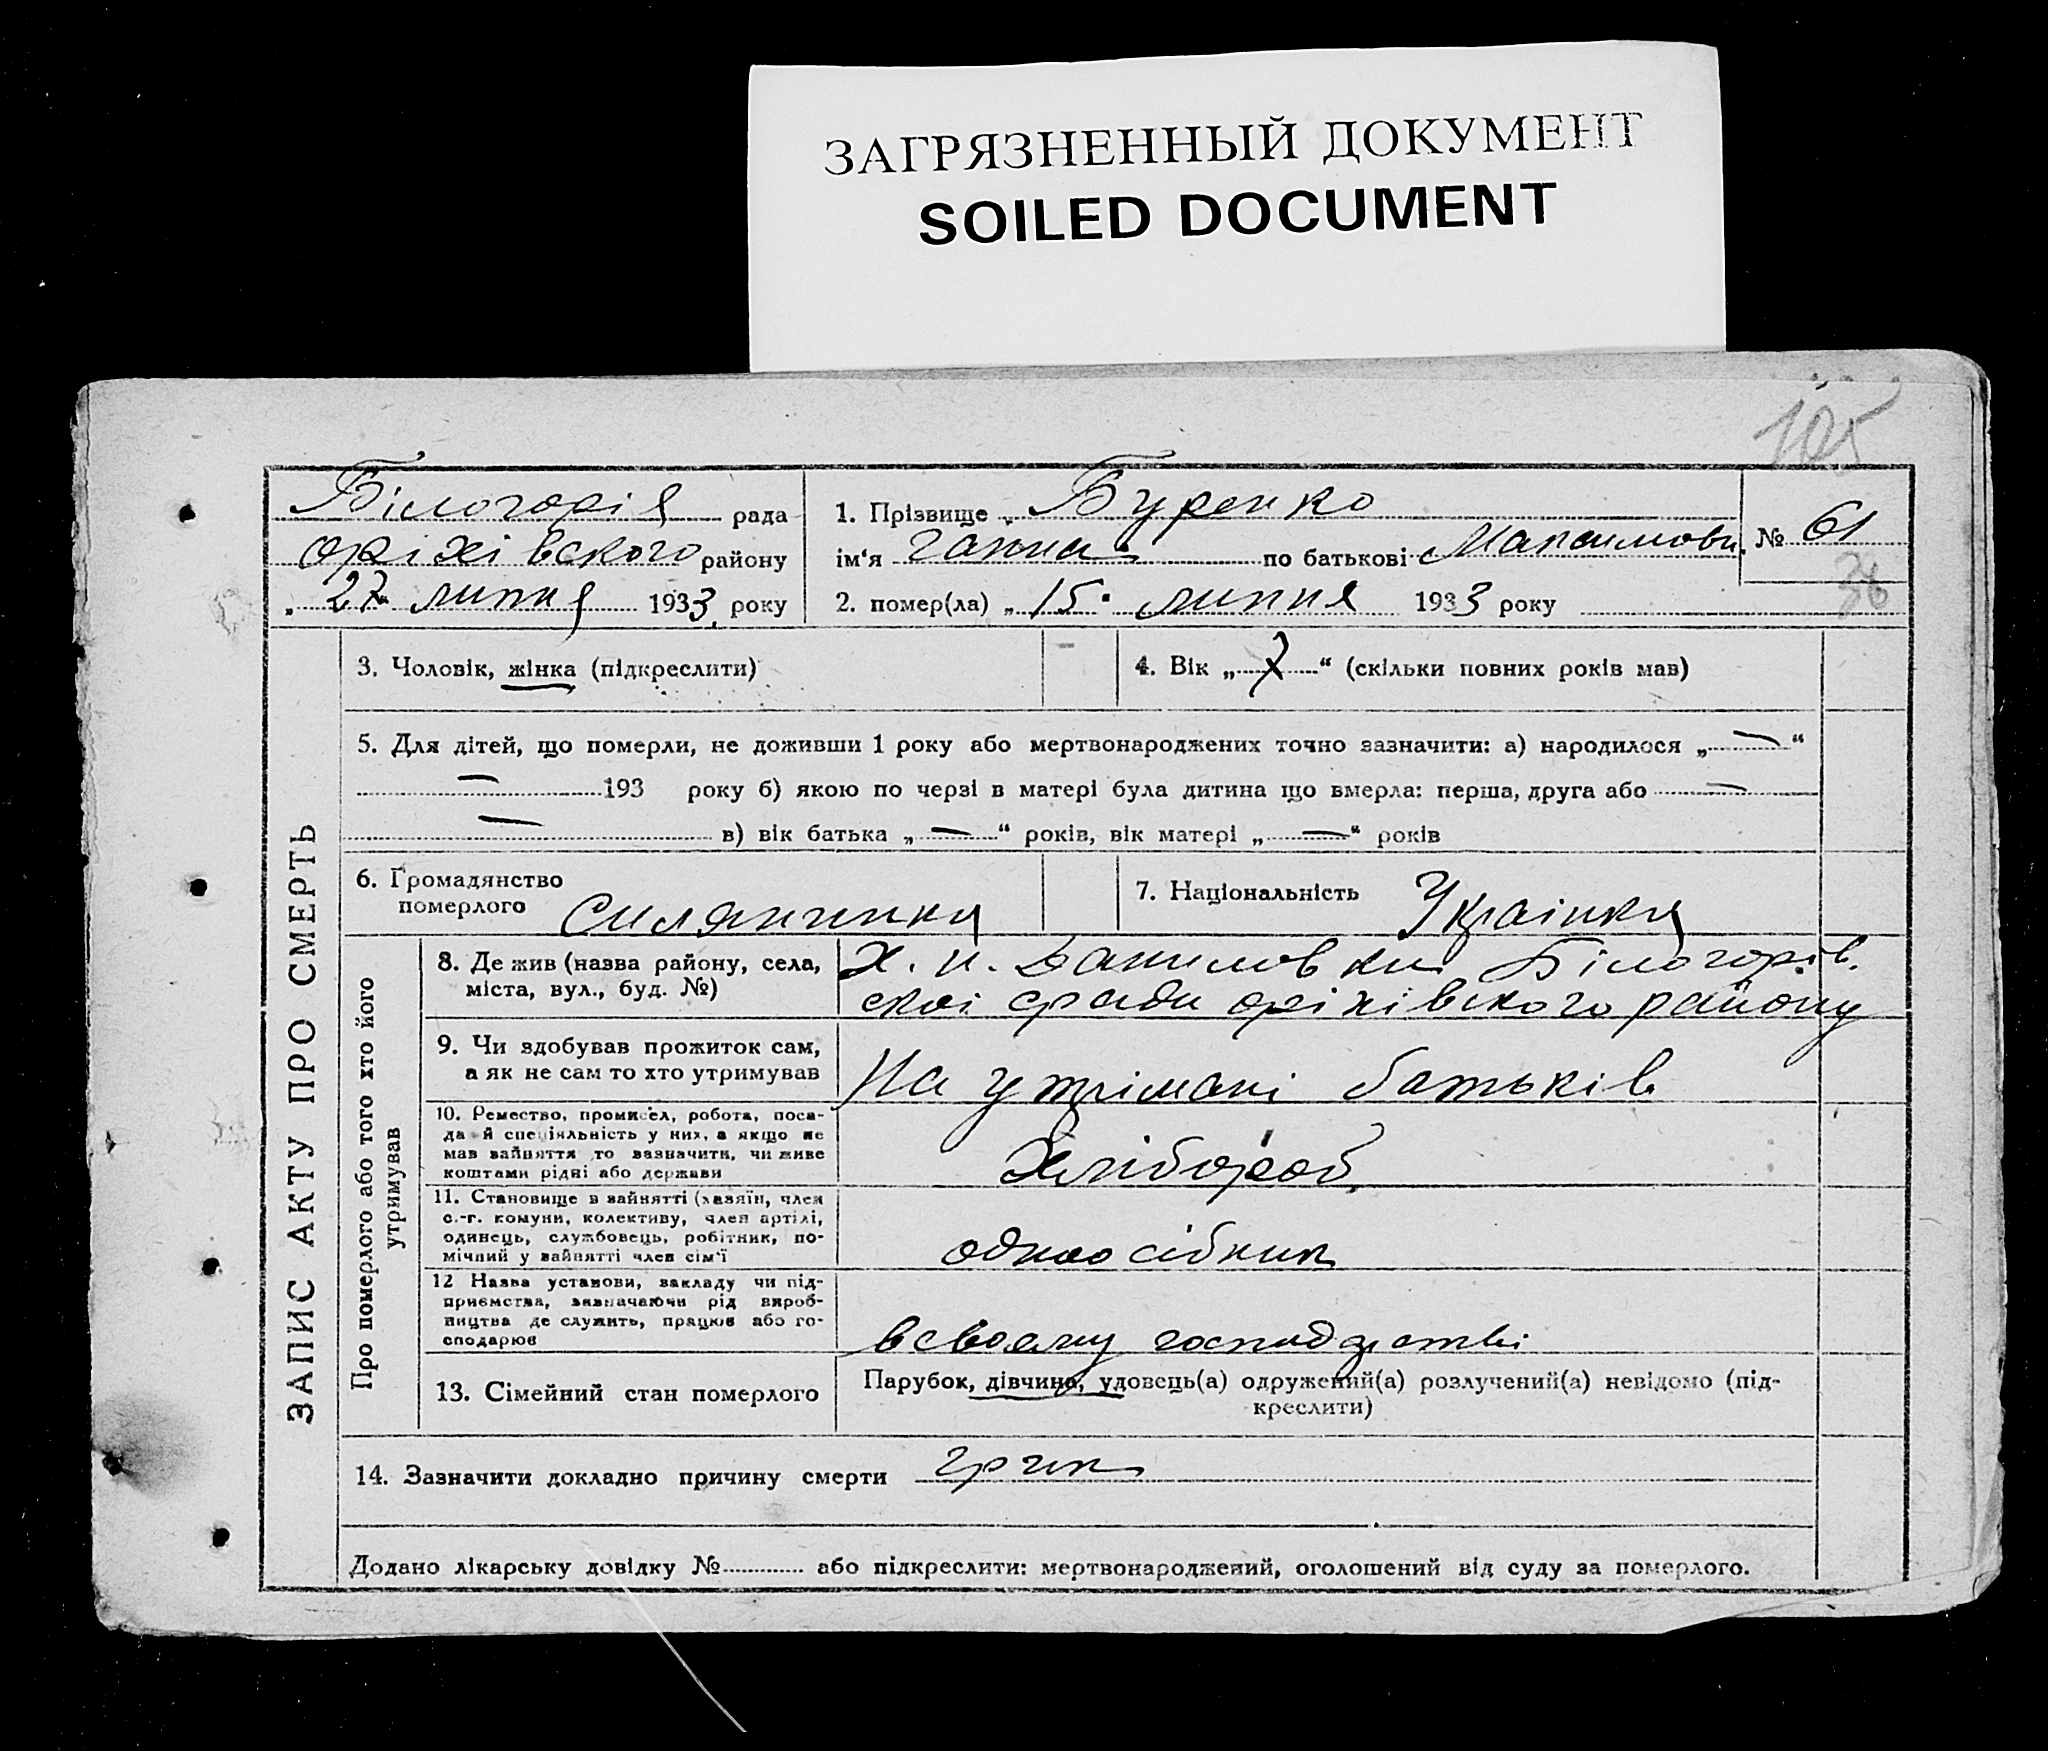 ЗАГРЯЗНЕННЫЙ ДОКУМЕНТ
SOILED DOCUMENT
105
Білогорія рада
оріхівского району
„ 27 липня 1933 року
1. Прізвище Буренко
ім‘я Ганна по батькові Максимовн.
2. помер(ла) „ 15 липня 1933 року
№ 61
36
ЗАПИС АКТУ ПРО СМЕРТЬ
3. Чоловік, жінка (підкреслити)
4. Вік „ 7 “ (скільки повних років мав)
5. Для дітей, що померли, не доживши 1 року або мертвонароджених точно зазначити: а) народилося „ — “
— 193 року б) якою по черзі в матері була дитина що вмерла: перша, друга або —
— в) вік батька „ — “ років, вік матері „ — “ років
6. Громадянство
померлого Силянинка
7. Національність Українка
Про померлого або того хто його
утримував
8. Де жив (назва району, села,
міста, вул., буд. №)
Х. н. Даниловка Білогорів.
скої сради оріхівского району
9. Чи здобував прожиток сам,
а як не сам то хто утримував
На утрімані батьків
10. Ремество, промисел, робота, поса-
да й спеціяльність у них, а якщо не
мав зайняття то зазначити, чи живе
коштами рідні або держави
Хлібороб
11. Становище в зайнятті (хазяїн, член
с.-г. комуни, колективу, член артілі,
одинець, службовець, робітник, по-
мічний у зайнятті член сім‘ї
одноосібник
12 Назва установи, закладу чи під-
приємства, зазначаючи рід вироб-
ництва де служить, працює або го-
сподарює
в своему господарстві
13. Сімейний стан померлого
Парубок, дівчина, удовець(а) одружений(а) розлучений(а) невідомо (під-
креслити)
14. Зазначити докладно причину смерти
Додано лікарську довідку № або підкреслити: мертвонароджений, оголошений від суду за померлого.